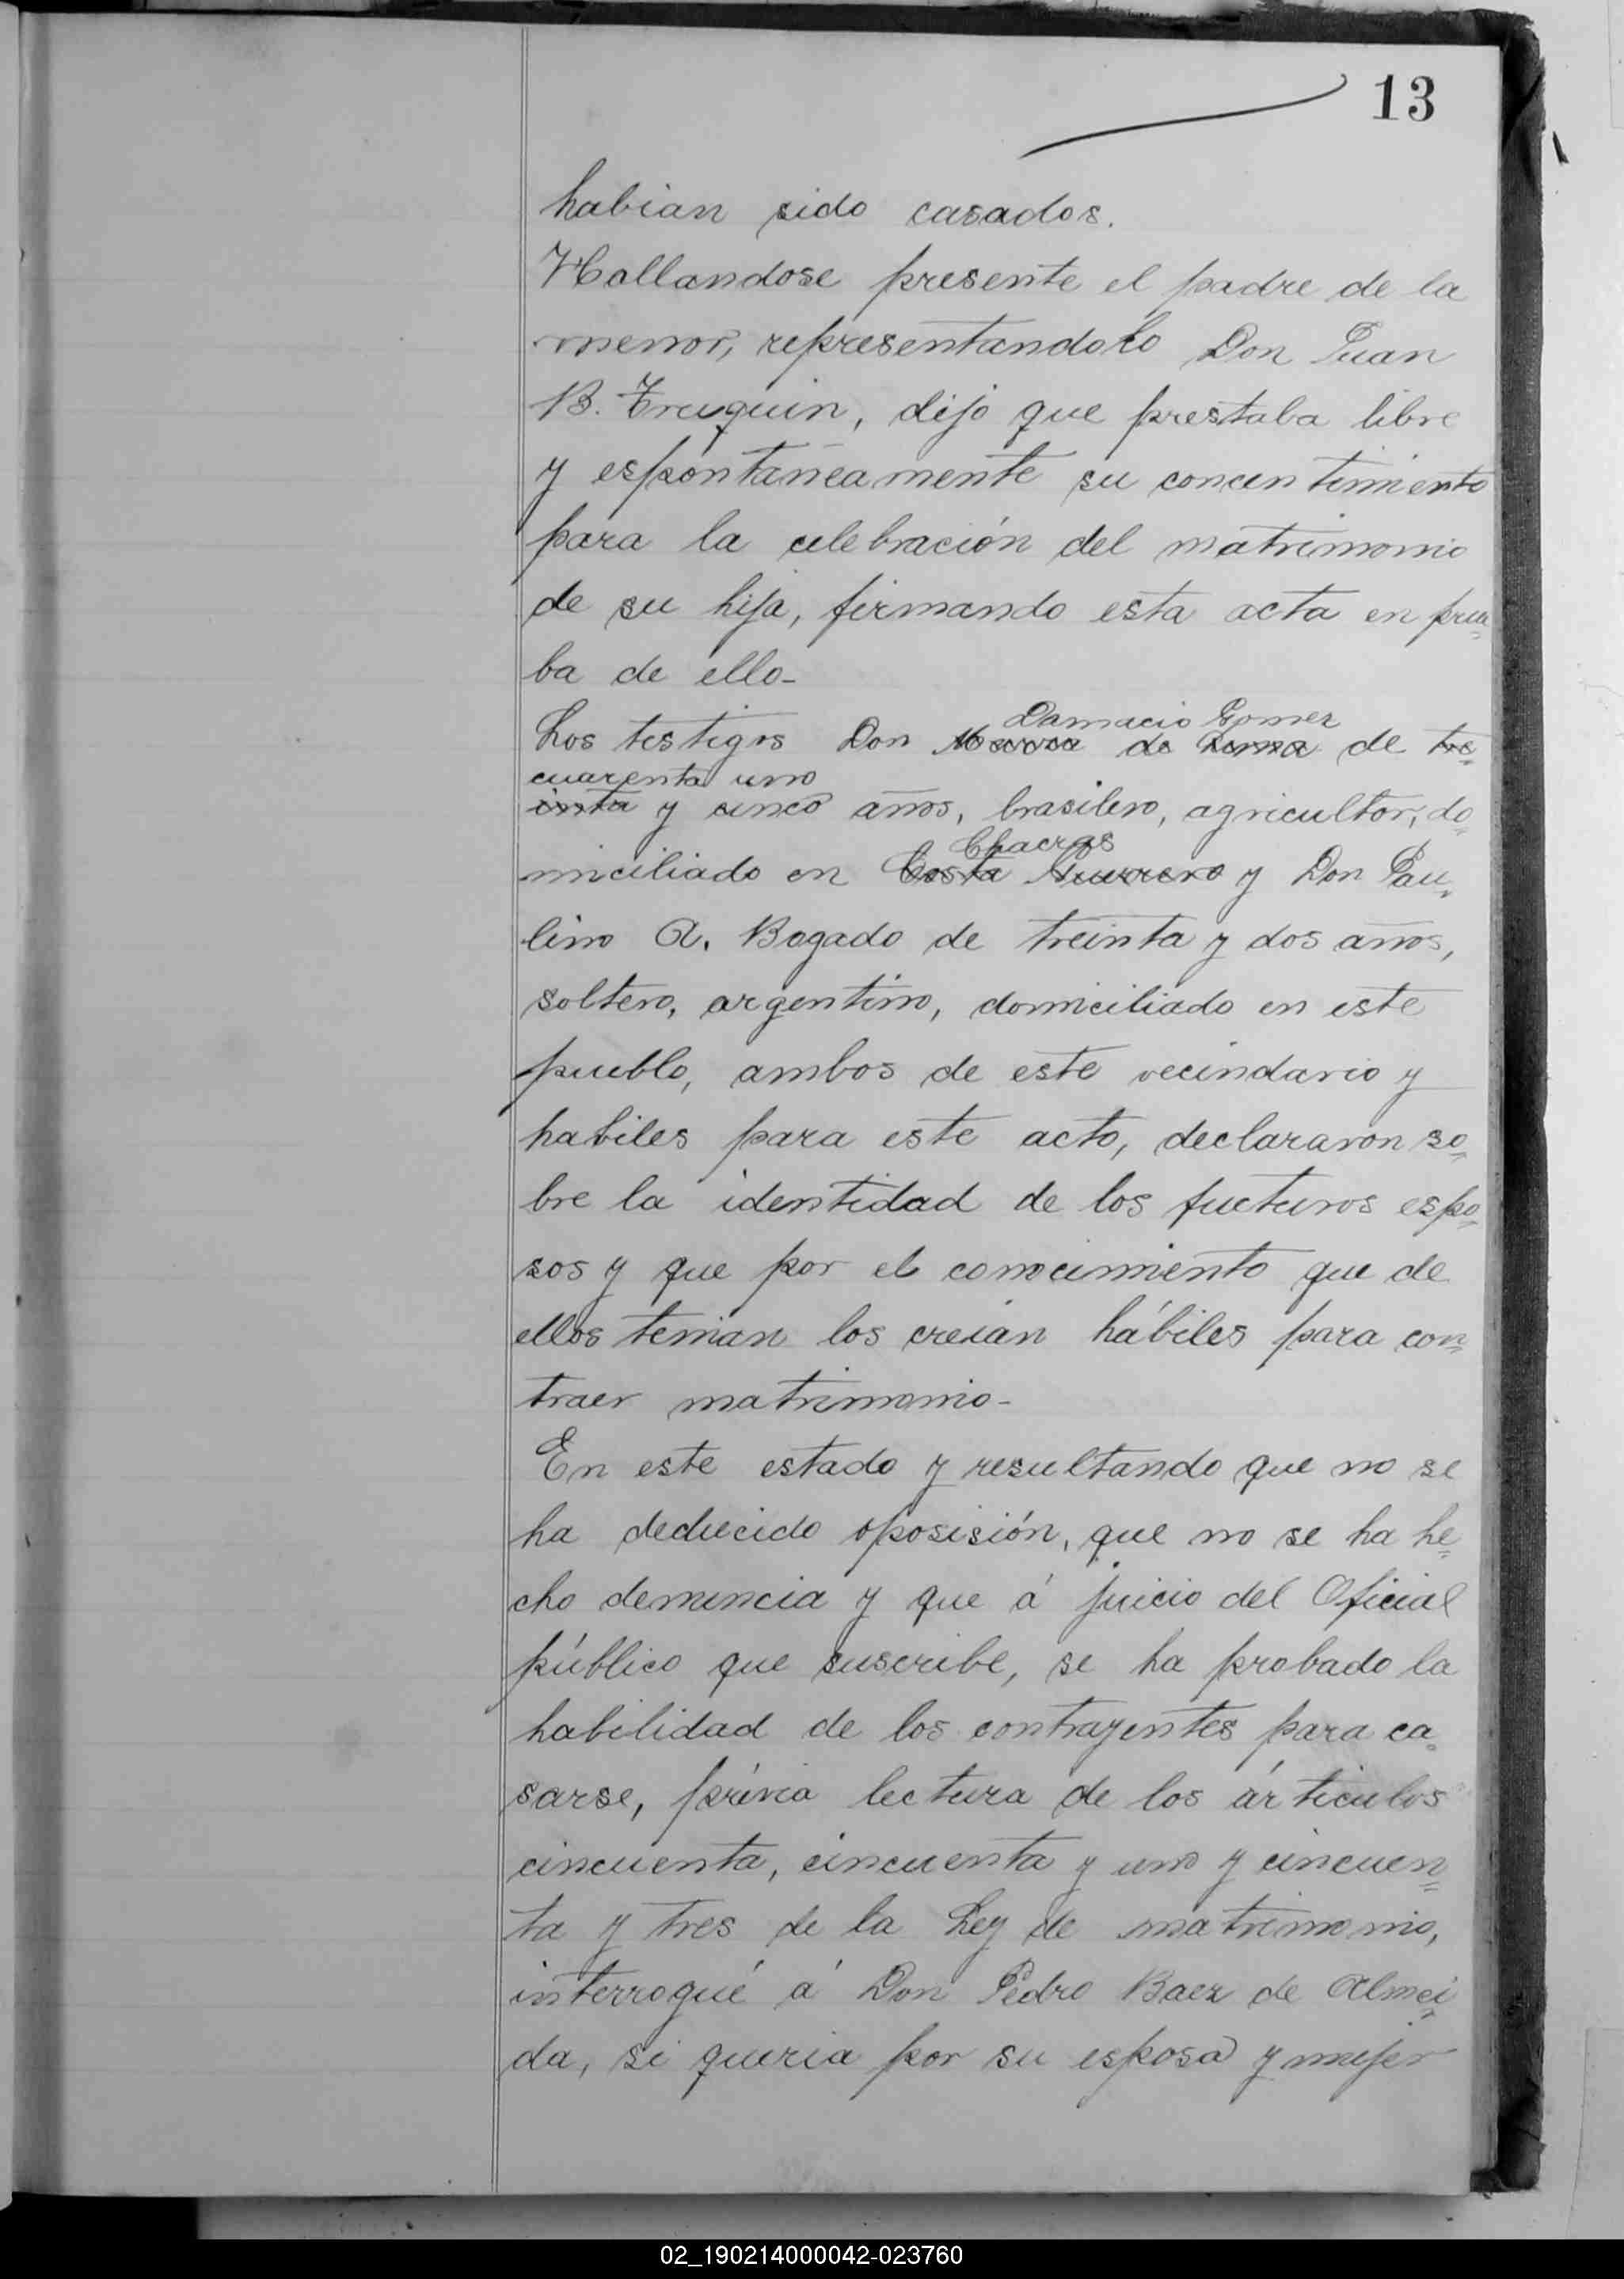 13
habian sido casados.
Hallandose presente el padre de la
menor, representandolo Don Juan
B. Truquin, dijo que prestaba libre
y espontaneamente su concentimiento
para la celebración del matrimonio
de su hija, firmando esta acta en prue=
ba de ello-
Damacio Gomez
Los testigos Don de Lima de tre=
cuarenta uno
inta y cinco años, brasilero, agricultor, do=
Chacras
miciliado en Costa Guerrero y Don Pau=
lino A. Bogado de treinta y dos años,
soltero, argentino, domiciliado en este
pueblo, ambos de este vecindario y
habiles para este acto, declararon so=
bre la identidad de los fucturos espo=
sos y que por el conocimiento que de
ellos tenian los creían hábiles para con=
traer matrimonio-
En este estado y resultando que no se
ha deducido oposisión, que no se ha he=
cho denuncia y que á juicio del Oficial
público que suscribe, se ha probado la
habilidad de los contrayentes para ca=
sarse, prévia lectura de los árticulos
cincuenta, cincuenta y uno y cincuen=
ta y tres de la Ley de matrimonio,
interrogué á Don Pedro Baez de Almei=
da, si queria por su esposa y mujer
02_190214000042-023760